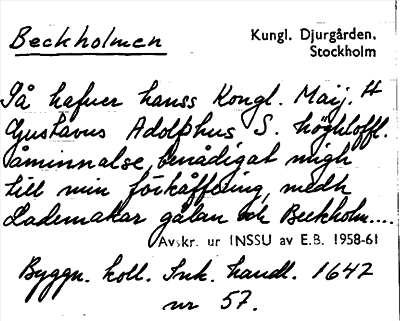 Beckholmen
Kungl. Djurgården.
Stockholm
Så hafuer hanss Kongl. Maij.tt
Gustavus Adolphus S. höghloffl.
åminnalse, benådigat migh
till min förkåffring, medh
Lademakar gålan och Beckholm....
Avskr. ur INSSU av E.B. 1958-61
Byggn. koll. Ink. handl. 1647
nr 57.